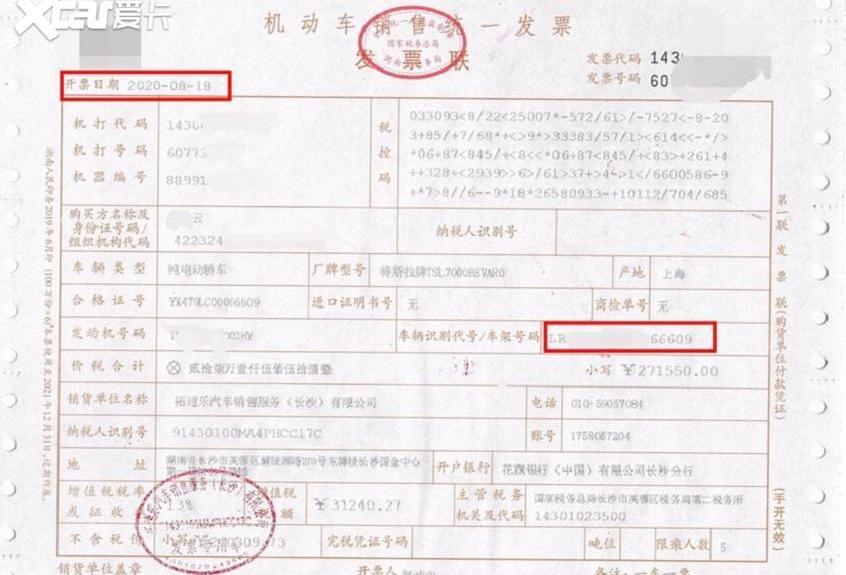 Xcar爱卡
机动车销售统一发票
国家税务总局
发票联
发票代码 1430
发票号码 607
开票日期 2020-08-18
机打代码 1430
机打号码 60773
机器编号 88991
税控码
033093<8/22<25007*-572/61>/-7527<-8-203
+85/+7/68*+<>9*>33383/57/1><614<<-*/>
*06+87<845/+<8<<*06+87<845/+<83>+261+4
++328+<2939>>6>/61>37+>4->1</6600586-9
+*7>8//6--9*18*26580933-+10112/704/685
购买方名称及身份证号码/组织机构代码
云
422324
纳税人识别号
车辆类型 纯电动轿车 厂牌型号 特斯拉牌TSL7000BEVAR0 产地 上海
合格证号 YX479LC00066609 进口证明书号 无 商检单号 无
发动机号码 车辆识别代号/车架号码 LR 66609
价税合计 ⊗ 贰拾柒万壹仟伍佰伍拾圆整 小写 ¥271550.00
销货单位名称 拓速乐汽车销售服务(长沙)有限公司 电话 010-59057084
纳税人识别号 91430100MA4PHCC17C 账号 1758057204
地址 湖南省长沙市芙蓉区解放西路270号东牌楼长沙国金中心 开户银行 花旗银行(中国)有限公司长沙分行
增值税税率或征收 13% 增值税额 ¥31240.27 主管税务机关及代码 国家税务总局长沙市芙蓉区税务局第二税务所
14301023500
不含税价 小写 ¥240309.73 完税凭证号码 吨位 限乘人数 5
销货单位盖章 开票人 备注:一车一票
第一联 发票联(购货单位付款凭证)
(手开无效)
发票专用章